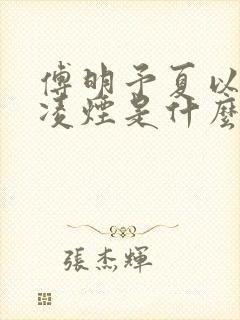 傅明予夏以
凌煙是什麼
張杰輝